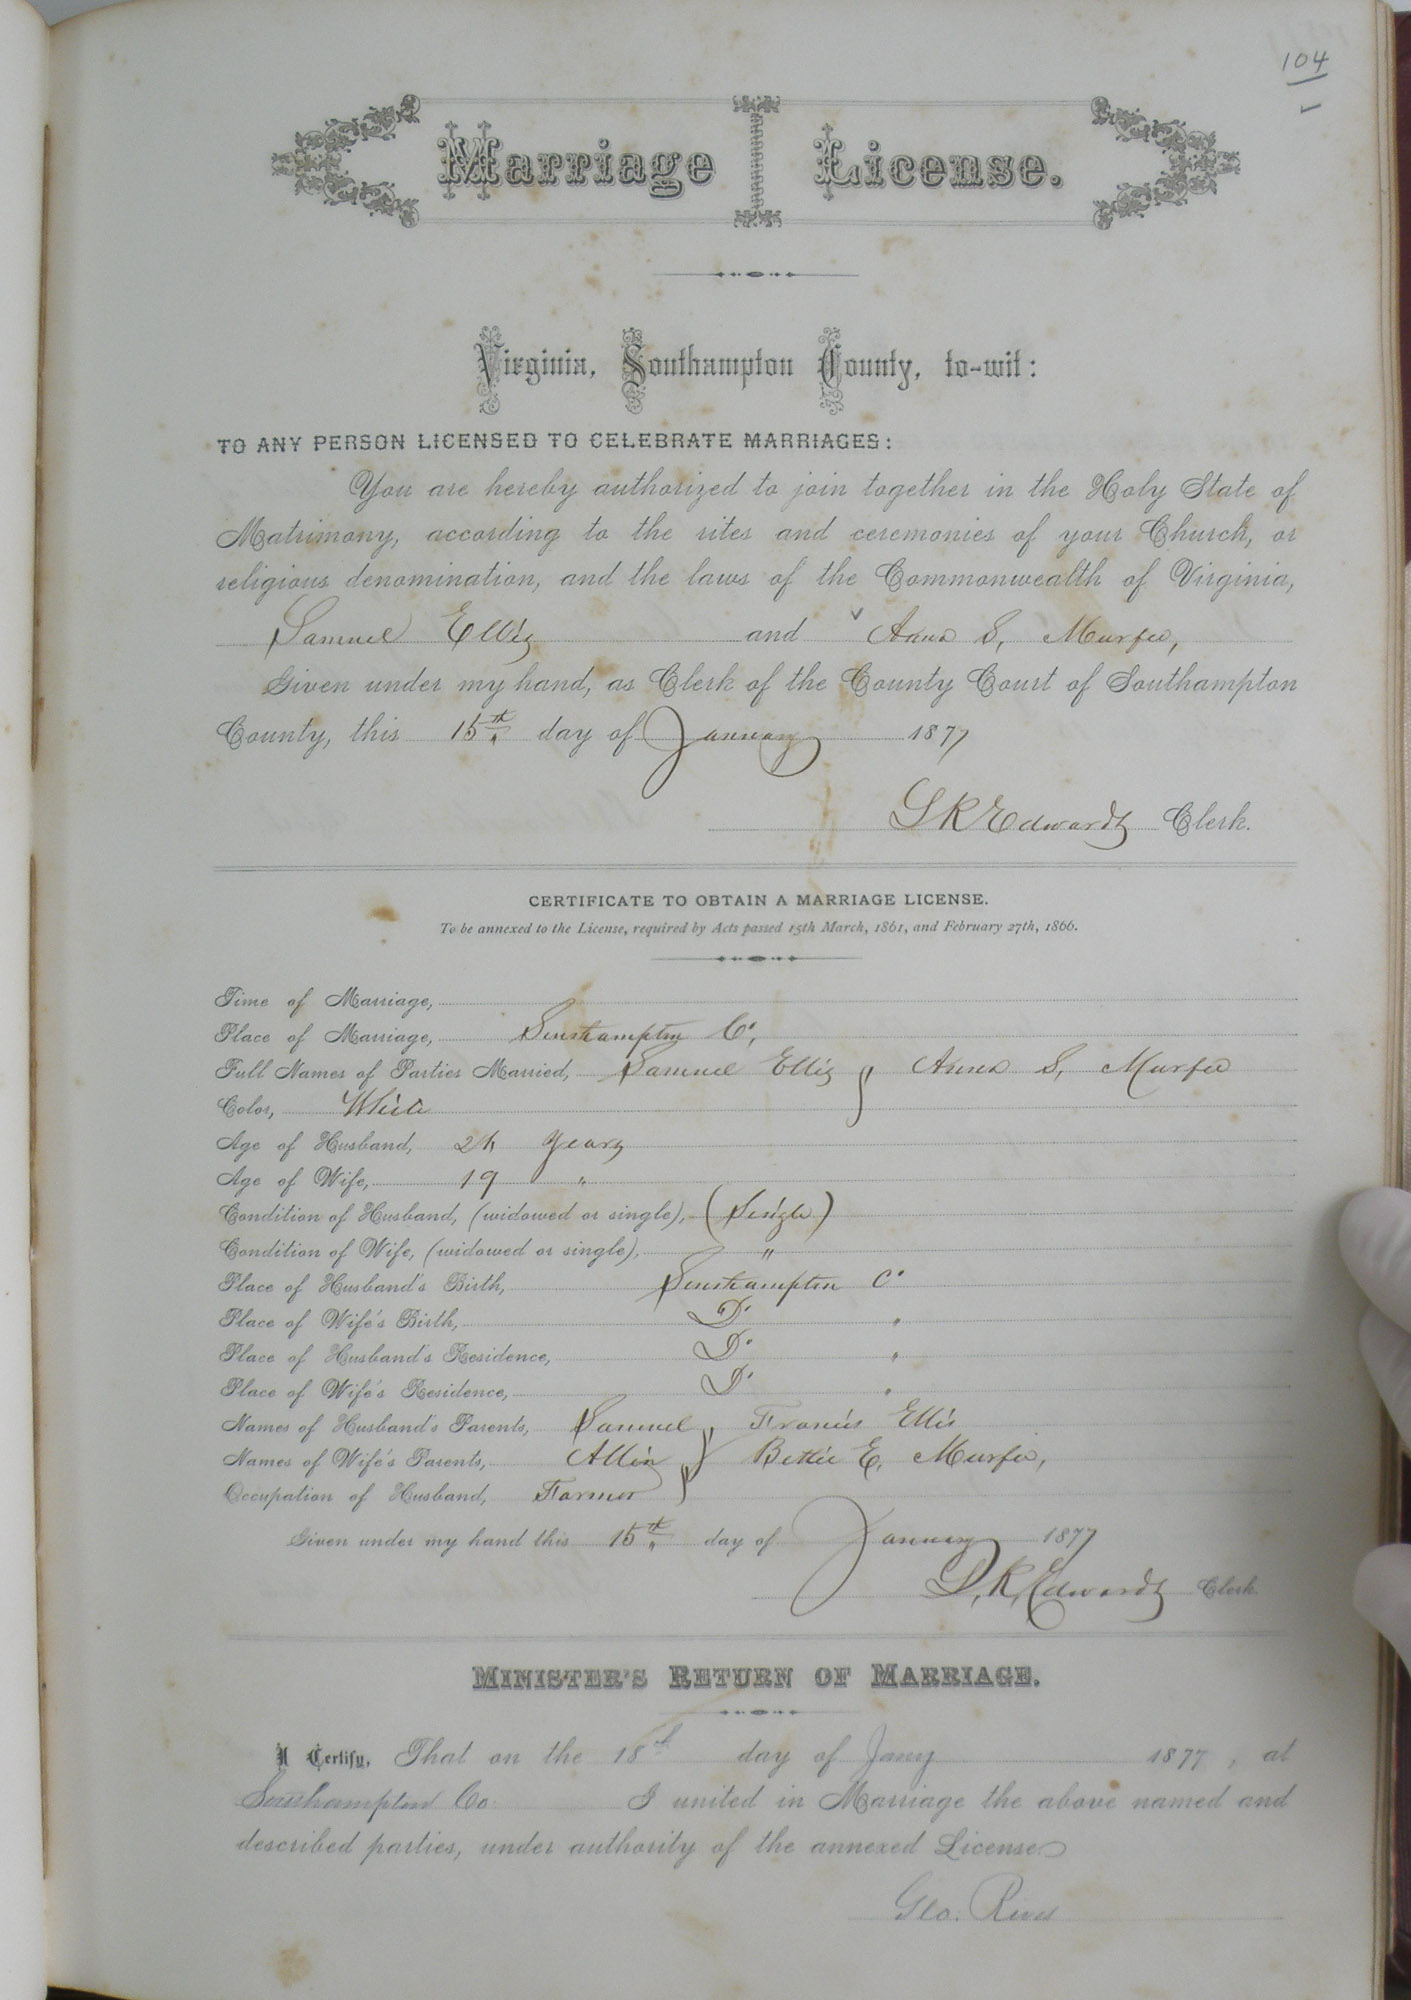 104
Marriage License.
Virginia, Southampton County, to-wit:
TO ANY PERSON LICENSED TO CELEBRATE MARRIAGES:
You are hereby authorized to join together in the Holy State of
Matrimony, according to the rites and ceremonies of your Church, or
religious denomination, and the laws of the Commonwealth of Virginia,
Samuel Ellis and Anna S, Murfee,
Given under my hand, as Clerk of the County Court of Southampton
County, this 15th day of January 1877
L R Edwards Clerk.
CERTIFICATE TO OBTAIN A MARRIAGE LICENSE.
To be annexed to the License, required by Acts passed 15th March, 1861, and February 27th, 1866.
Time of Marriage,
Place of Marriage, Southampton Co,
Full Names of Parties Married, Samuel Ellis } Anna S, Murfee
Color, White
Age of Husband, Years
Age of Wife, 19 "
Condition of Husband, (widowed or single), (Single)
Condition of Wife, (widowed or single), "
Place of Husband's Birth, Southampton Co
Place of Wife's Birth, Do "
Place of Husband's Residence, Do "
Place of Wife's Residence, Do "
Names of Husband's Parents, Samuel } Francis Ellis
Names of Wife's Parents, } Bettie E, Murfee,
Occupation of Husband, Farmer
Given under my hand this 15th day of January 1877
L, R, Edwards Clerk
MINISTER'S RETURN OF MARRIAGE.
I Certify, That on the 18th day of Jany 1877, at
Southampton Co. I united in Marriage the above named and
described parties, under authority of the annexed License
Geo. Rives